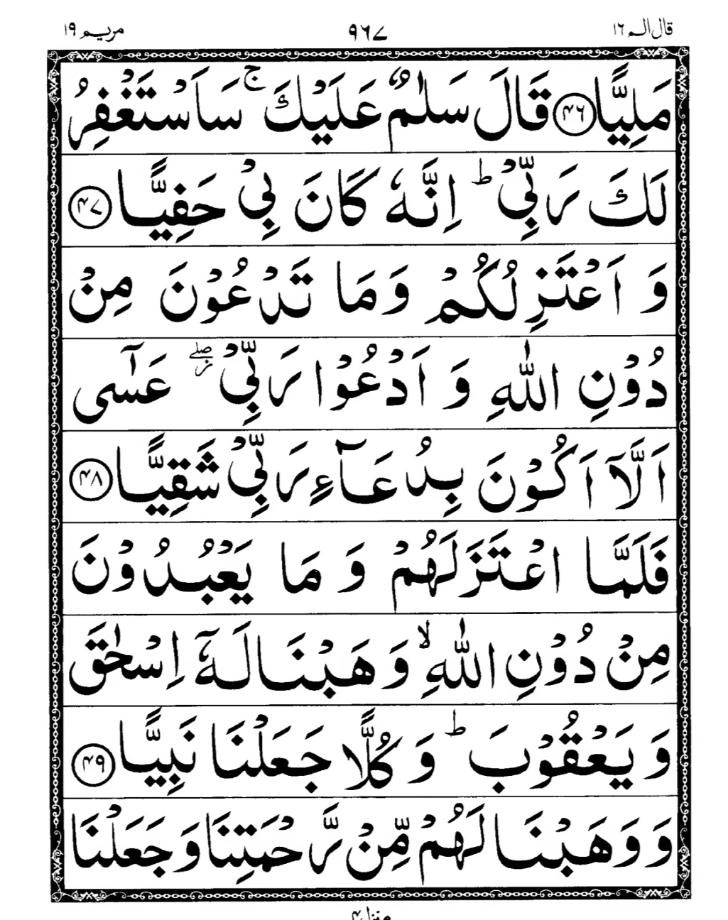 قال الم ١٦ ٩٦٧ مريم ١٩
مَلِيًّا ﴿٤٦﴾ قَالَ سَلٰمٌ عَلَيْكَ ۚ سَاَسْتَغْفِرُ
لَكَ رَبِّيْ ؕ اِنَّهٗ كَانَ بِيْ حَفِيًّا ﴿٤٧﴾
وَ اَعْتَزِلُكُمْ وَمَا تَدْعُوْنَ مِنْ
دُوْنِ اللّٰهِ وَ اَدْعُوْا رَبِّيْ ۖ٘ عَسٰٓى
اَلَّاۤ اَكُوْنَ بِدُعَآءِ رَبِّيْ شَقِيًّا ﴿٤٨﴾
فَلَمَّا اعْتَزَلَهُمْ وَ مَا يَعْبُدُوْنَ
مِنْ دُوْنِ اللّٰهِ ۙ وَهَبْنَا لَهٗۤ اِسْحٰقَ
وَ يَعْقُوْبَ ؕ وَ كُلًّا جَعَلْنَا نَبِيًّا ﴿٤٩﴾
وَ وَهَبْنَا لَهُمْ مِّنْ رَّحْمَتِنَا وَ جَعَلْنَا
منزل ٤